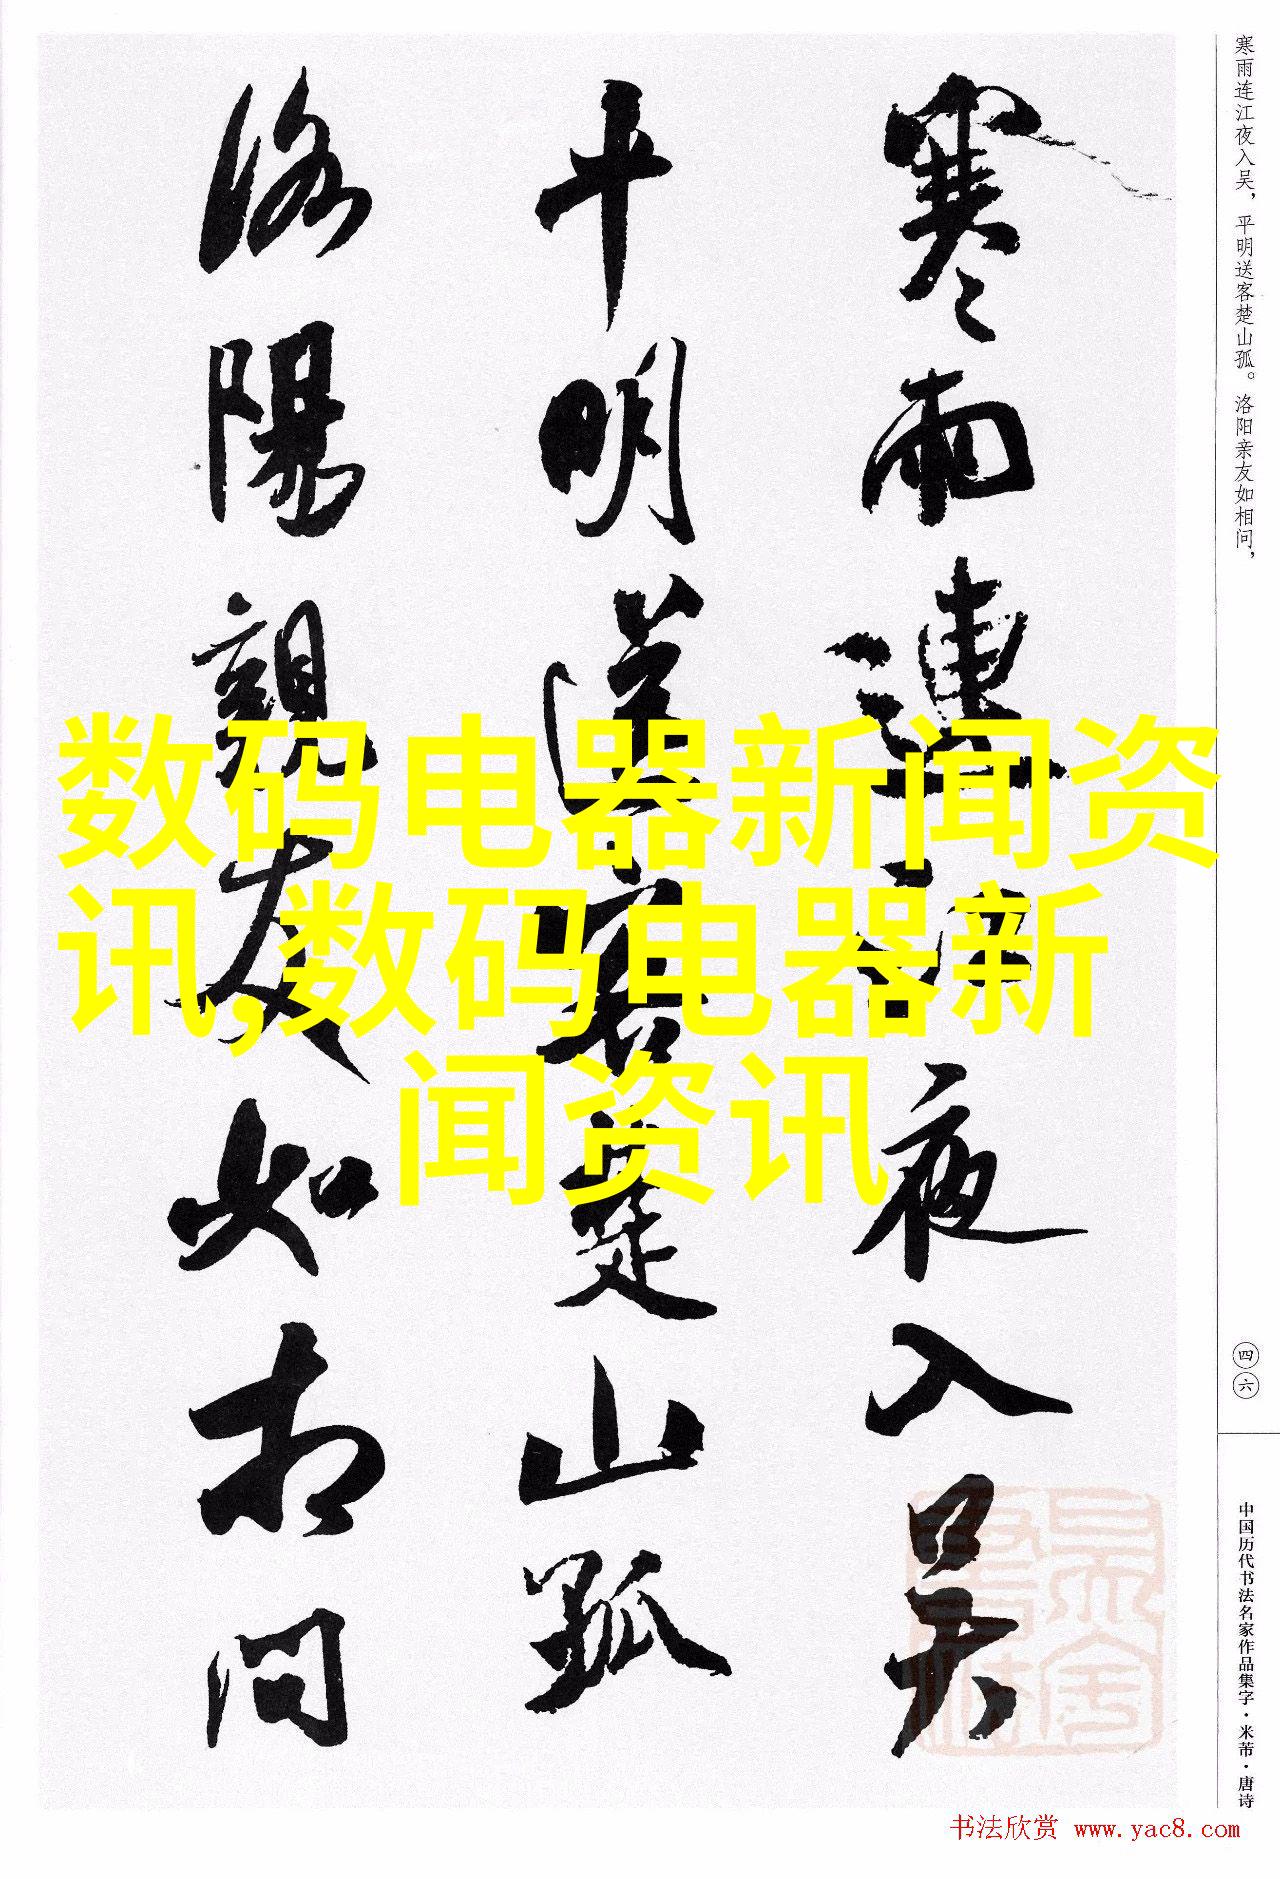 寒雨连江夜入吴，平明送客楚山孤。洛阳亲友如相问，
四六
中国历代书法名家作品集字·米芾·唐诗
寒雨連江夜入吴
平明送客楚山孤
洛陽親友如相问
数码电器新闻资
讯,数码电器新
闻资讯
书法欣赏 www.yac8.com